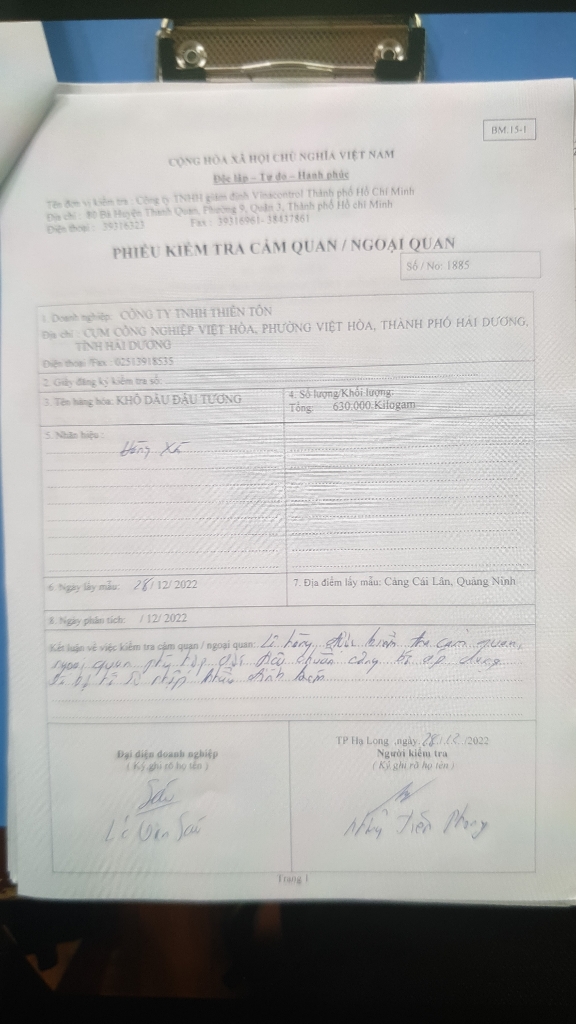 BM.15-1
CỘNG HÒA XÃ HỘI CHỦ NGHĨA VIỆT NAM
Độc lập – Tự do – Hạnh phúc
Tên đơn vị kiểm tra : Công ty TNHH giám định Vinacontrol Thành phố Hồ Chí Minh
Địa chỉ : 80 Bà Huyện Thanh Quan, Phường 9, Quận 3, Thành phố Hồ chí Minh
Điện thoại : 39316323 Fax : 39316961- 38437861
PHIẾU KIỂM TRA CẢM QUAN / NGOẠI QUAN
Số / No: 1885
1. Doanh nghiệp: CÔNG TY TNHH THIÊN TÔN
Địa chỉ : CỤM CÔNG NGHIỆP VIỆT HÒA, PHƯỜNG VIỆT HÒA, THÀNH PHỐ HẢI DƯƠNG,
TỈNH HẢI DƯƠNG
Điện thoại /Fax : 02513918535
2. Giấy đăng ký kiểm tra số:
3. Tên hàng hóa: KHÔ DẦU ĐẬU TƯƠNG
4. Số lượng/Khối lượng:
Tổng: 630,000 Kilogam
5. Nhãn hiệu :
Hàng xá
6. Ngày lấy mẫu: 28/ 12/ 2022
7. Địa điểm lấy mẫu: Cảng Cái Lân, Quảng Ninh
8. Ngày phân tích: / 12 / 2022
Kết luận về việc kiểm tra cảm quan / ngoại quan: Lô hàng được kiểm tra cảm quan,
ngoại quan phù hợp với tiêu chuẩn công bố áp dụng
và hồ sơ nhập khẩu đính kèm
Đại diện doanh nghiệp
( Ký ghi rõ họ tên )
Lê Văn Sáu
TP Hạ Long ,ngày 28/12 /2022
Người kiểm tra
( Ký ghi rõ họ tên )
Tiến Phong
Trang 1